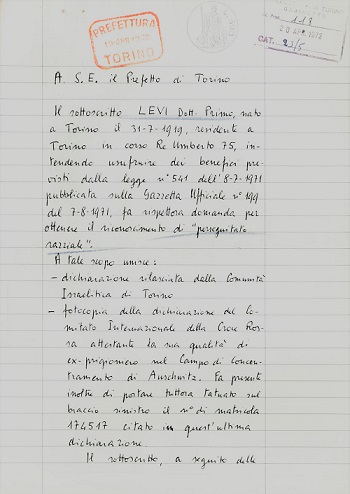 PREFETTURA
TORINO
113
20 APR. 1972
CAT.
A. S. E. il Prefetto di Torino
Il sottoscritto LEVI Dott. Primo, nato
a Torino il 31-7-1919, residente a
Torino in corso Re Umberto 75, in-
tendendo usufruire dei benefici pre-
visti dalla legge n° 541 dell'8-7-1971
pubblicata sulla Gazzetta Ufficiale n° 199
del 7-8-1971, fa rispettosa domanda per
ottenere il riconoscimento di "perseguitato
razziale".
A tale scopo unisce:
- dichiarazione rilasciata dalla Comunità
Israelitica di Torino
- fotocopia della dichiarazione del Co-
mitato Internazionale della Croce Ros-
sa attestante la sua qualità di
ex-prigioniero nel Campo di Concen-
tramento di Auschwitz. Fa presente
inoltre di portare tuttora tatuato sul
braccio sinistro il n° di matricola
174517 citato in quest'ultima
dichiarazione.
Il sottoscritto, a seguito delle